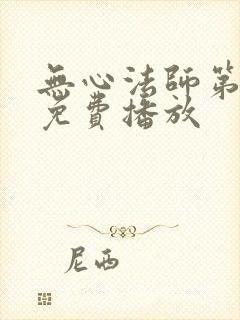 無心法師第
免費播放
尼西